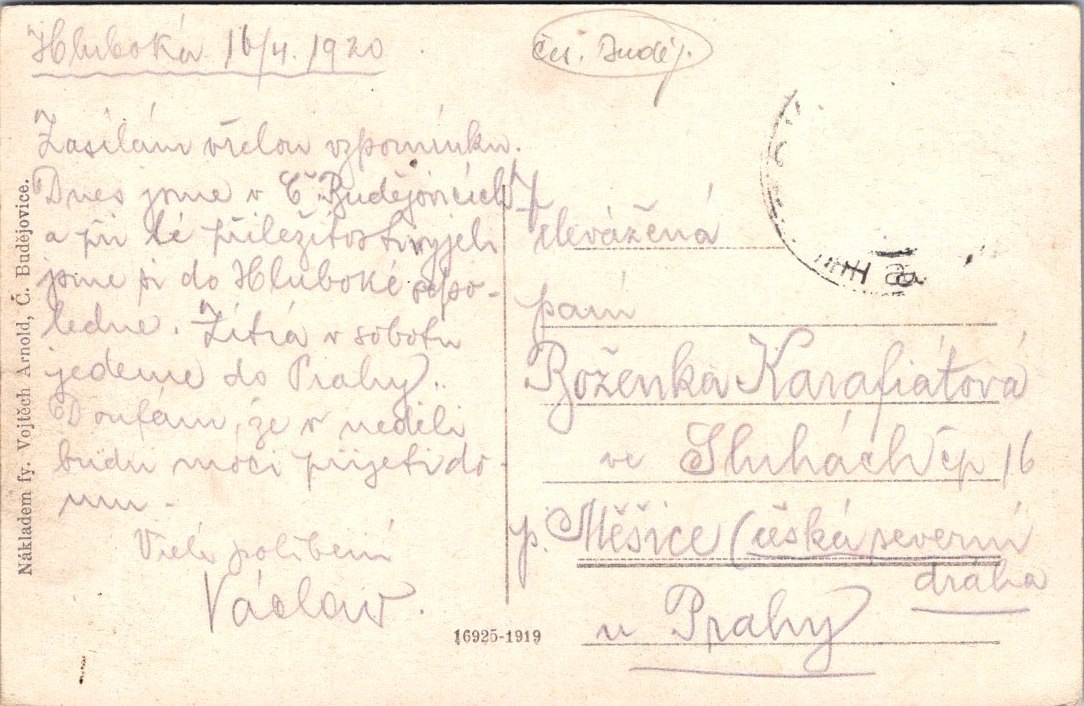 Hluboká 16/4. 1920
Zasílám vřelou vzpomínku.
Dnes jsme v Č. Budějovicích
a při té příležitosti vyjeli
jsme si do Hluboké odpo-
ledne. Zítra v sobotu
jedeme do Prahy.
Doufám, že v neděli
budu moci přijeti do-
mu.
Vřelé políbení
Václav.
Nákladem fy. Vojtěch Arnold, Č. Budějovice.
16925-1919
Čes. Buděj.
Velevážená
paní
Boženka Karafiátová
ve Sluhách čp 16
p. Měšice (česká severní
dráha
u Prahy